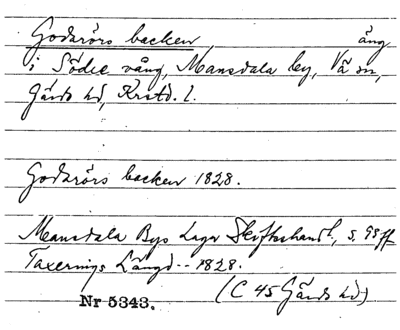 Godarörs backen, äng
i Södre vång, Mansdala by, Vä sn,
Gärds hd, Krstd. l.
Godarörs backen 1828.
Mansdala Bys Laga Skifteshandl., s. 98 ff
Taxerings Längd -- 1828.
Nr 5343. (C 45 Gärds hd)